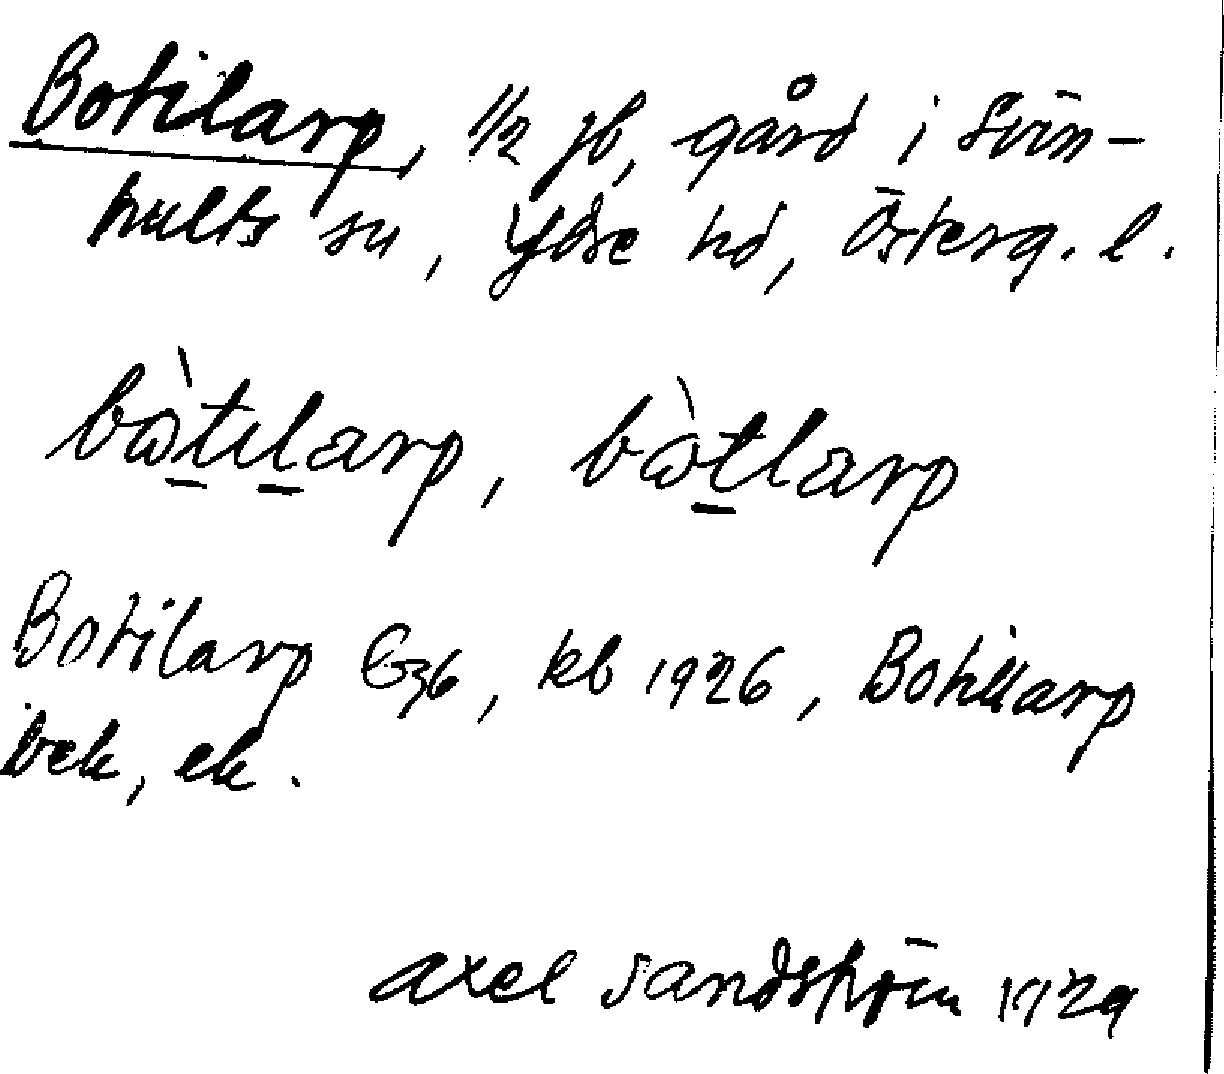 Botilarp, 1/2 jb, gård i Svin-
hults sn, Ydre hd, Österg. l.
bὼtɩlarp, bὼtlarp
Botilarp Gzb, kb 1926, Botillarp
bek, ek.
Axel Sandström 1929